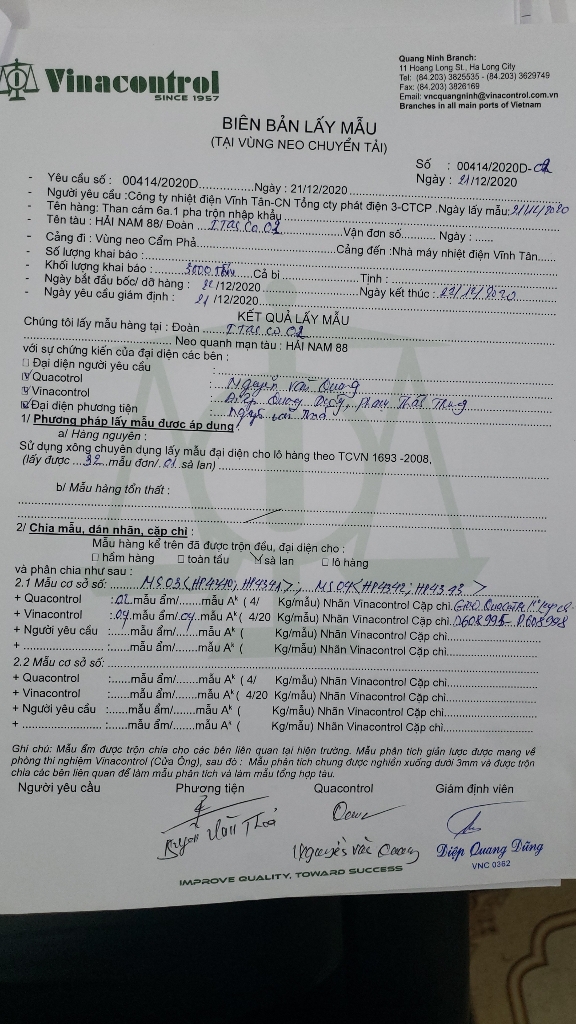 Vinacontrol
SINCE 1957
Quang Ninh Branch:
11 Hoang Long St., Ha Long City
Tel: (84.203) 3825535 - (84.203) 3629749
Fax: (84.203) 3826169
Email: vncquangninh@vinacontrol.com.vn
Branches in all main ports of Vietnam
BIÊN BẢN LẤY MẪU
(TẠI VÙNG NEO CHUYỂN TẢI)
Số : 00414/2020D-C2
Ngày : 21/12/2020
- Yêu cầu số : 00414/2020D..............Ngày : 21/12/2020
- Người yêu cầu :Công ty nhiệt điện Vĩnh Tân-CN Tổng cty phát điện 3-CTCP .Ngày lấy mẫu: 21/12/2020
- Tên hàng: Than cám 6a.1 pha trộn nhập khẩu
- Tên tàu : HẢI NAM 88/ Đoàn ITASCO C2 Vận đơn số.......... Ngày : ......
- Cảng đi : Vùng neo Cẩm Phả Cảng đến :Nhà máy nhiệt điện Vĩnh Tân.....
- Số lượng khai báo :
- Khối lượng khai báo : 3000 Tấn Cả bì Tịnh :
- Ngày bắt đầu bốc/ dỡ hàng : /12/2020 Ngày kết thúc : 22/12/2020
- Ngày yêu cầu giám định : 21 /12/2020
KẾT QUẢ LẤY MẪU
Chúng tôi lấy mẫu hàng tại : Đoàn ITASCO C2
Neo quanh mạn tàu : HẢI NAM 88
với sự chứng kiến của đại diện các bên :
Đại diện người yêu cầu :
Quacotrol : Nguyễn Văn Quang
Vinacontrol : Diệp Quang Dũng, Phạm Thung
Đại diện phương tiện : Nguyễn Văn Thoả
1/ Phương pháp lấy mẫu được áp dụng
a/ Hàng nguyên :
Sử dụng xông chuyên dụng lấy mẫu đại diện cho lô hàng theo TCVN 1693 -2008,
(lấy được ...32...mẫu đơn/.01.sà lan)
b/ Mẫu hàng tổn thất :
2/ Chia mẫu, dán nhãn, cặp chì :
Mẫu hàng kể trên đã được trộn đều, đại diện cho :
hầm hàng toàn tấu sà lan lô hàng
và phân chia như sau :
2.1 Mẫu cơ sở số: MS03<HP4340; HP4341>; MS04<HP4342; HP4343>
+ Quacontrol :02.mẫu ẩm/.......mẫu Aᵏ ( 4/ Kg/mẫu) Nhãn Vinacontrol Cặp chì.
+ Vinacontrol :.04.mẫu ẩm/.04.mẫu Aᵏ ( 4/20 Kg/mẫu) Nhãn Vinacontrol Cặp chì..D608995-D608998
+ Người yêu cầu :......mẫu ẩm/......mẫu Aᵏ ( Kg/mẫu) Nhãn Vinacontrol Cặp chì
+ ........................ :......mẫu ẩm/......mẫu Aᵏ ( Kg/mẫu) Nhãn Vinacontrol Cặp chì
2.2 Mẫu cơ sở số:
+ Quacontrol :......mẫu ẩm/......mẫu Aᵏ ( 4/ Kg/mẫu) Nhãn Vinacontrol Cặp chì
+ Vinacontrol :......mẫu ẩm/......mẫu Aᵏ ( 4/20 Kg/mẫu) Nhãn Vinacontrol Cặp chì
+ Người yêu cầu :......mẫu ẩm/......mẫu Aᵏ ( Kg/mẫu) Nhãn Vinacontrol Cặp chì
+ ........................ :......mẫu ẩm/......mẫu Aᵏ ( Kg/mẫu) Nhãn Vinacontrol Cặp chì
Ghi chú: Mẫu ẩm được trộn chia cho các bên liên quan tại hiện trường. Mẫu phân tích giản lược được mang về
phòng thí nghiệm Vinacontrol (Cửa Ông), sau đó : Mẫu phân tích chung được nghiền xuống dưới 3mm và được trộn
chia các bên liên quan để làm mẫu phân tích và làm mẫu tổng hợp tàu.
Người yêu cầu Phương tiện Quacontrol Giám định viên
Nguyễn Văn Thoả Nguyễn Văn Quang Diệp Quang Dũng
VNC 0362
IMPROVE QUALITY, TOWARD SUCCESS